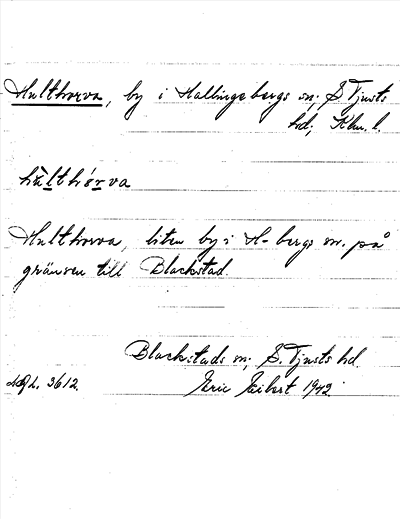 Hulthorva, by i Hallingebergs sn; S. Tjusts
hd; Klm. l.
hùlthórva
Hulthorva, liten by i H-bergs sn. på
gränsen till Blackstad.
Blackstads sn; S. Tjusts hd.
3612. Eric 1942